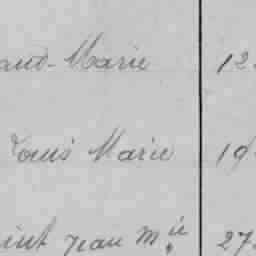 Marie 12
Louis Marie 19
Jean Mie 27